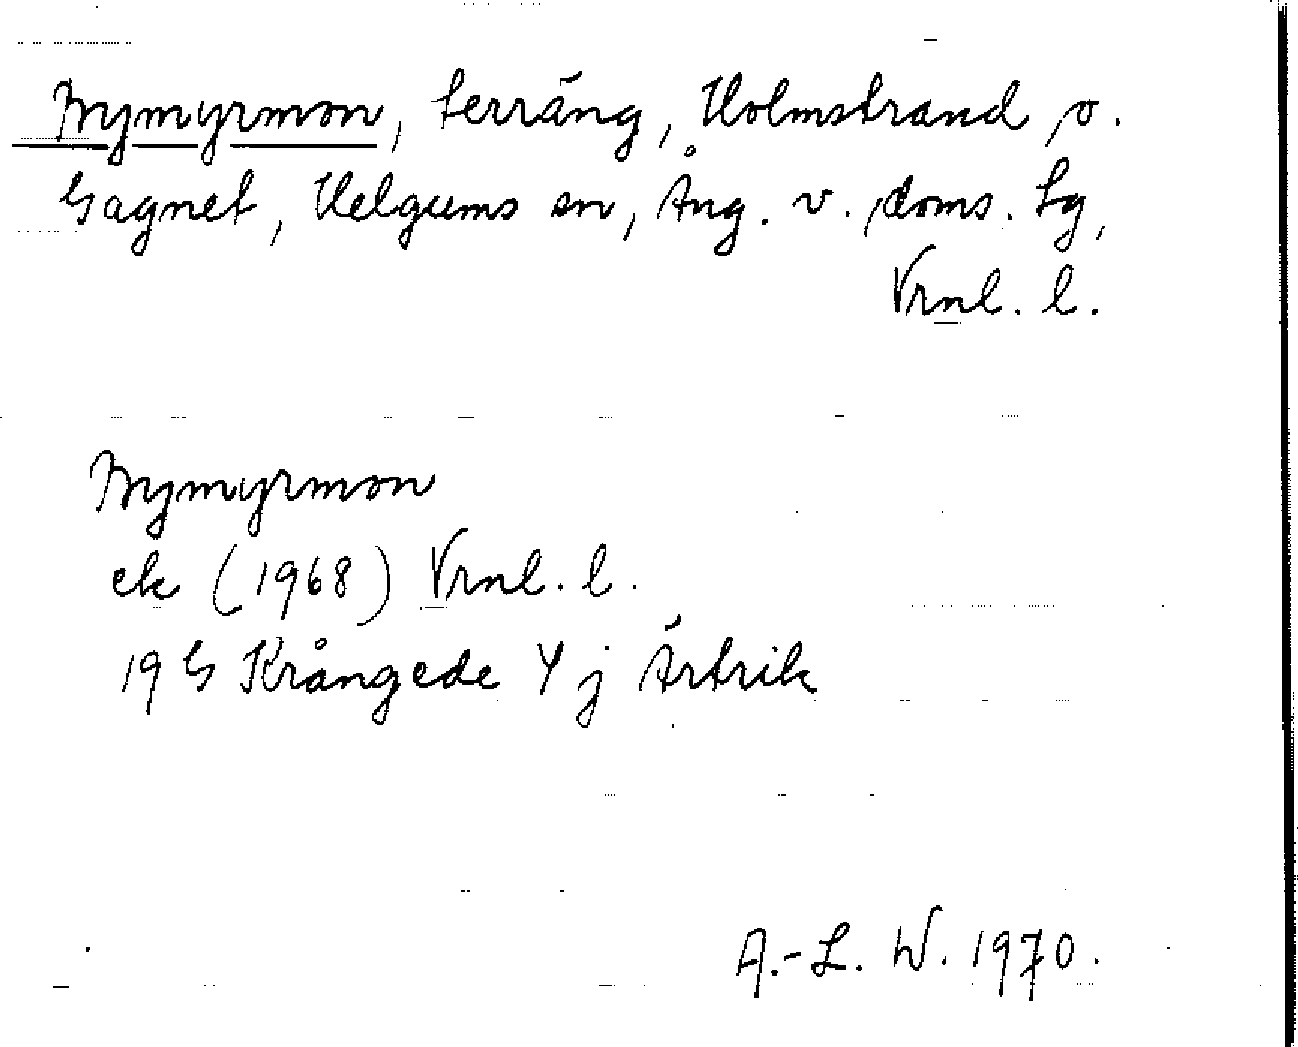 Nymyrmon, terräng, Holmstrand o.
Gagnet, Helgums sn, Ång. v. doms. Lg,
Vrnl. l.
Nymyrmon
ek (1968) Vrnl. l.
19 G Krångede Y j Ärtrik
A.-L. W. 1970.